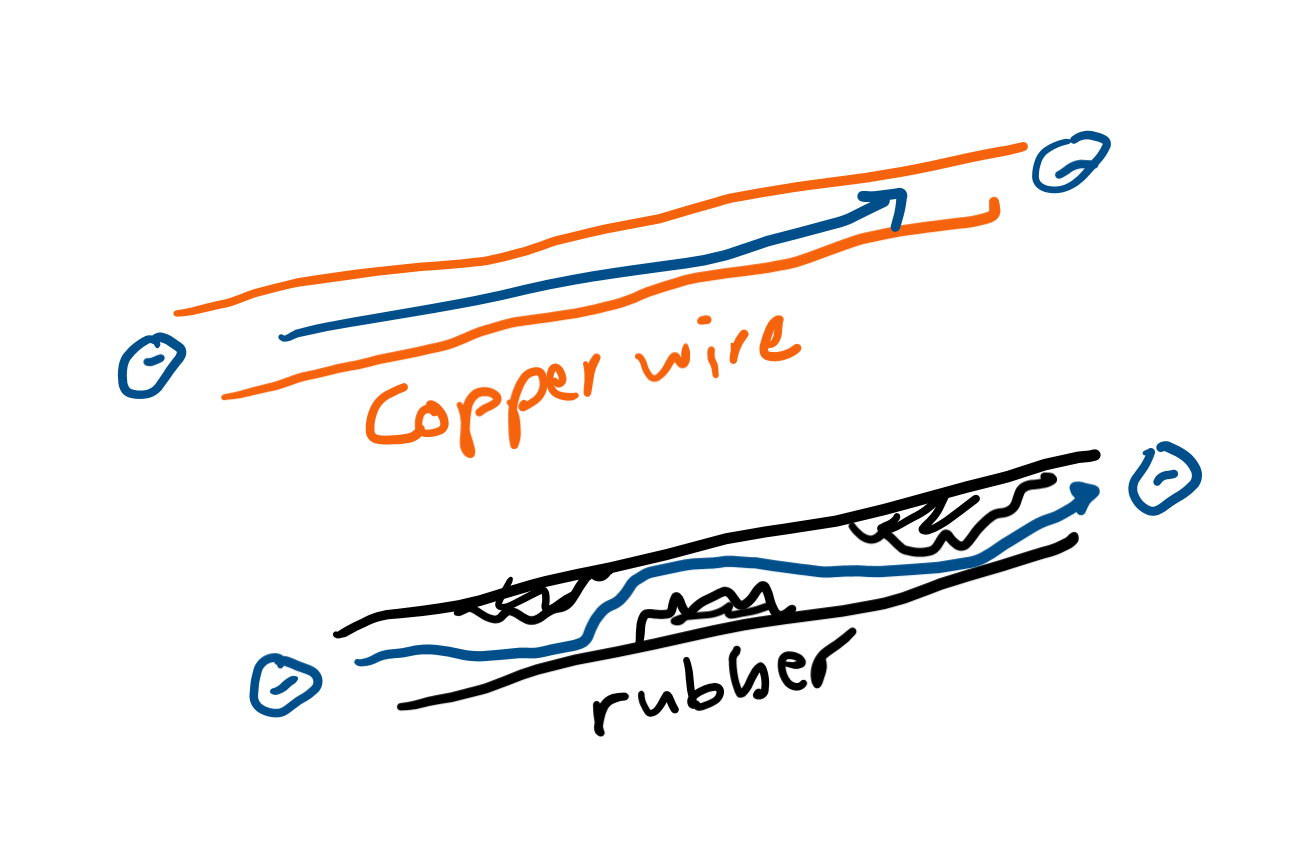 Copper wire
rubber